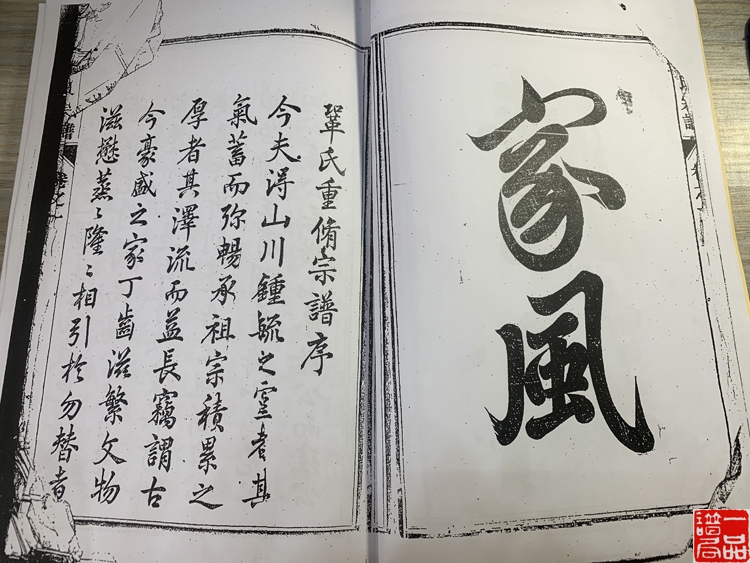 家風
鞏氏重脩宗譜序
今夫淂山川鍾毓之霊者其
氣蓄而弥暢承祖宗積累之
厚者其澤流而益長竊謂古
今豪盛之家丁齒滋繁文物
滋懋蒸〻隆〻相引於勿替者
宗譜
卷之一
一品譜局